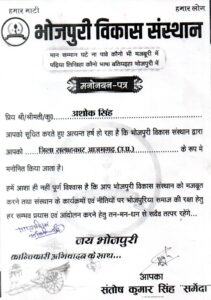 हमार माटी हमार लोग
भोजपुरी विकास संस्थान
मान सम्मान घटे ना पावे कौनो भी मजबूरी में
पढ़िहा लिखिहा कौनो भाषा बतियइहा भोजपुरी में
मनोनयन-पत्र
प्रिय श्री/श्रीमती/कु0 अशोक सिंह
आपको सूचित करते हुए अत्यन्त हर्ष हो रहा है कि भोजपुरी विकास संस्थान द्वारा
आपको जिला सलाहकार आजमगढ़ (उ.प्र.) के रूप में
मनोनित किया जाता है।
हमें आशा ही नहीं पूर्ण विश्वास है कि आप भोजपुरी विकास संस्थान को मजबूत
करने तथा संस्थान के कार्यक्रमों एवं नीतियों पर भोजपुरिया समाज की रक्षा हेतु
हर सम्भव प्रयास एवं आंदोलन करने हेतु तन-मन-धन से सदैव तत्पर रहेंगे...
जय भोजपुरी
क्रान्तिकारी अभिवादन के साथ...
आपका
संतोष कुमार सिंह 'समेदा'